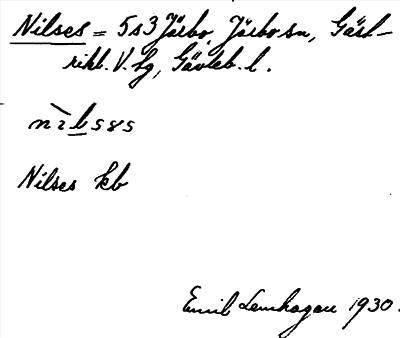 Nilses = 5s3 Järbo, Järbo sn, Gäst-
rikl. V. hg, Gävleb. l.
nìlsɛs
Nilses kb
Emil Lemhagen 1930.